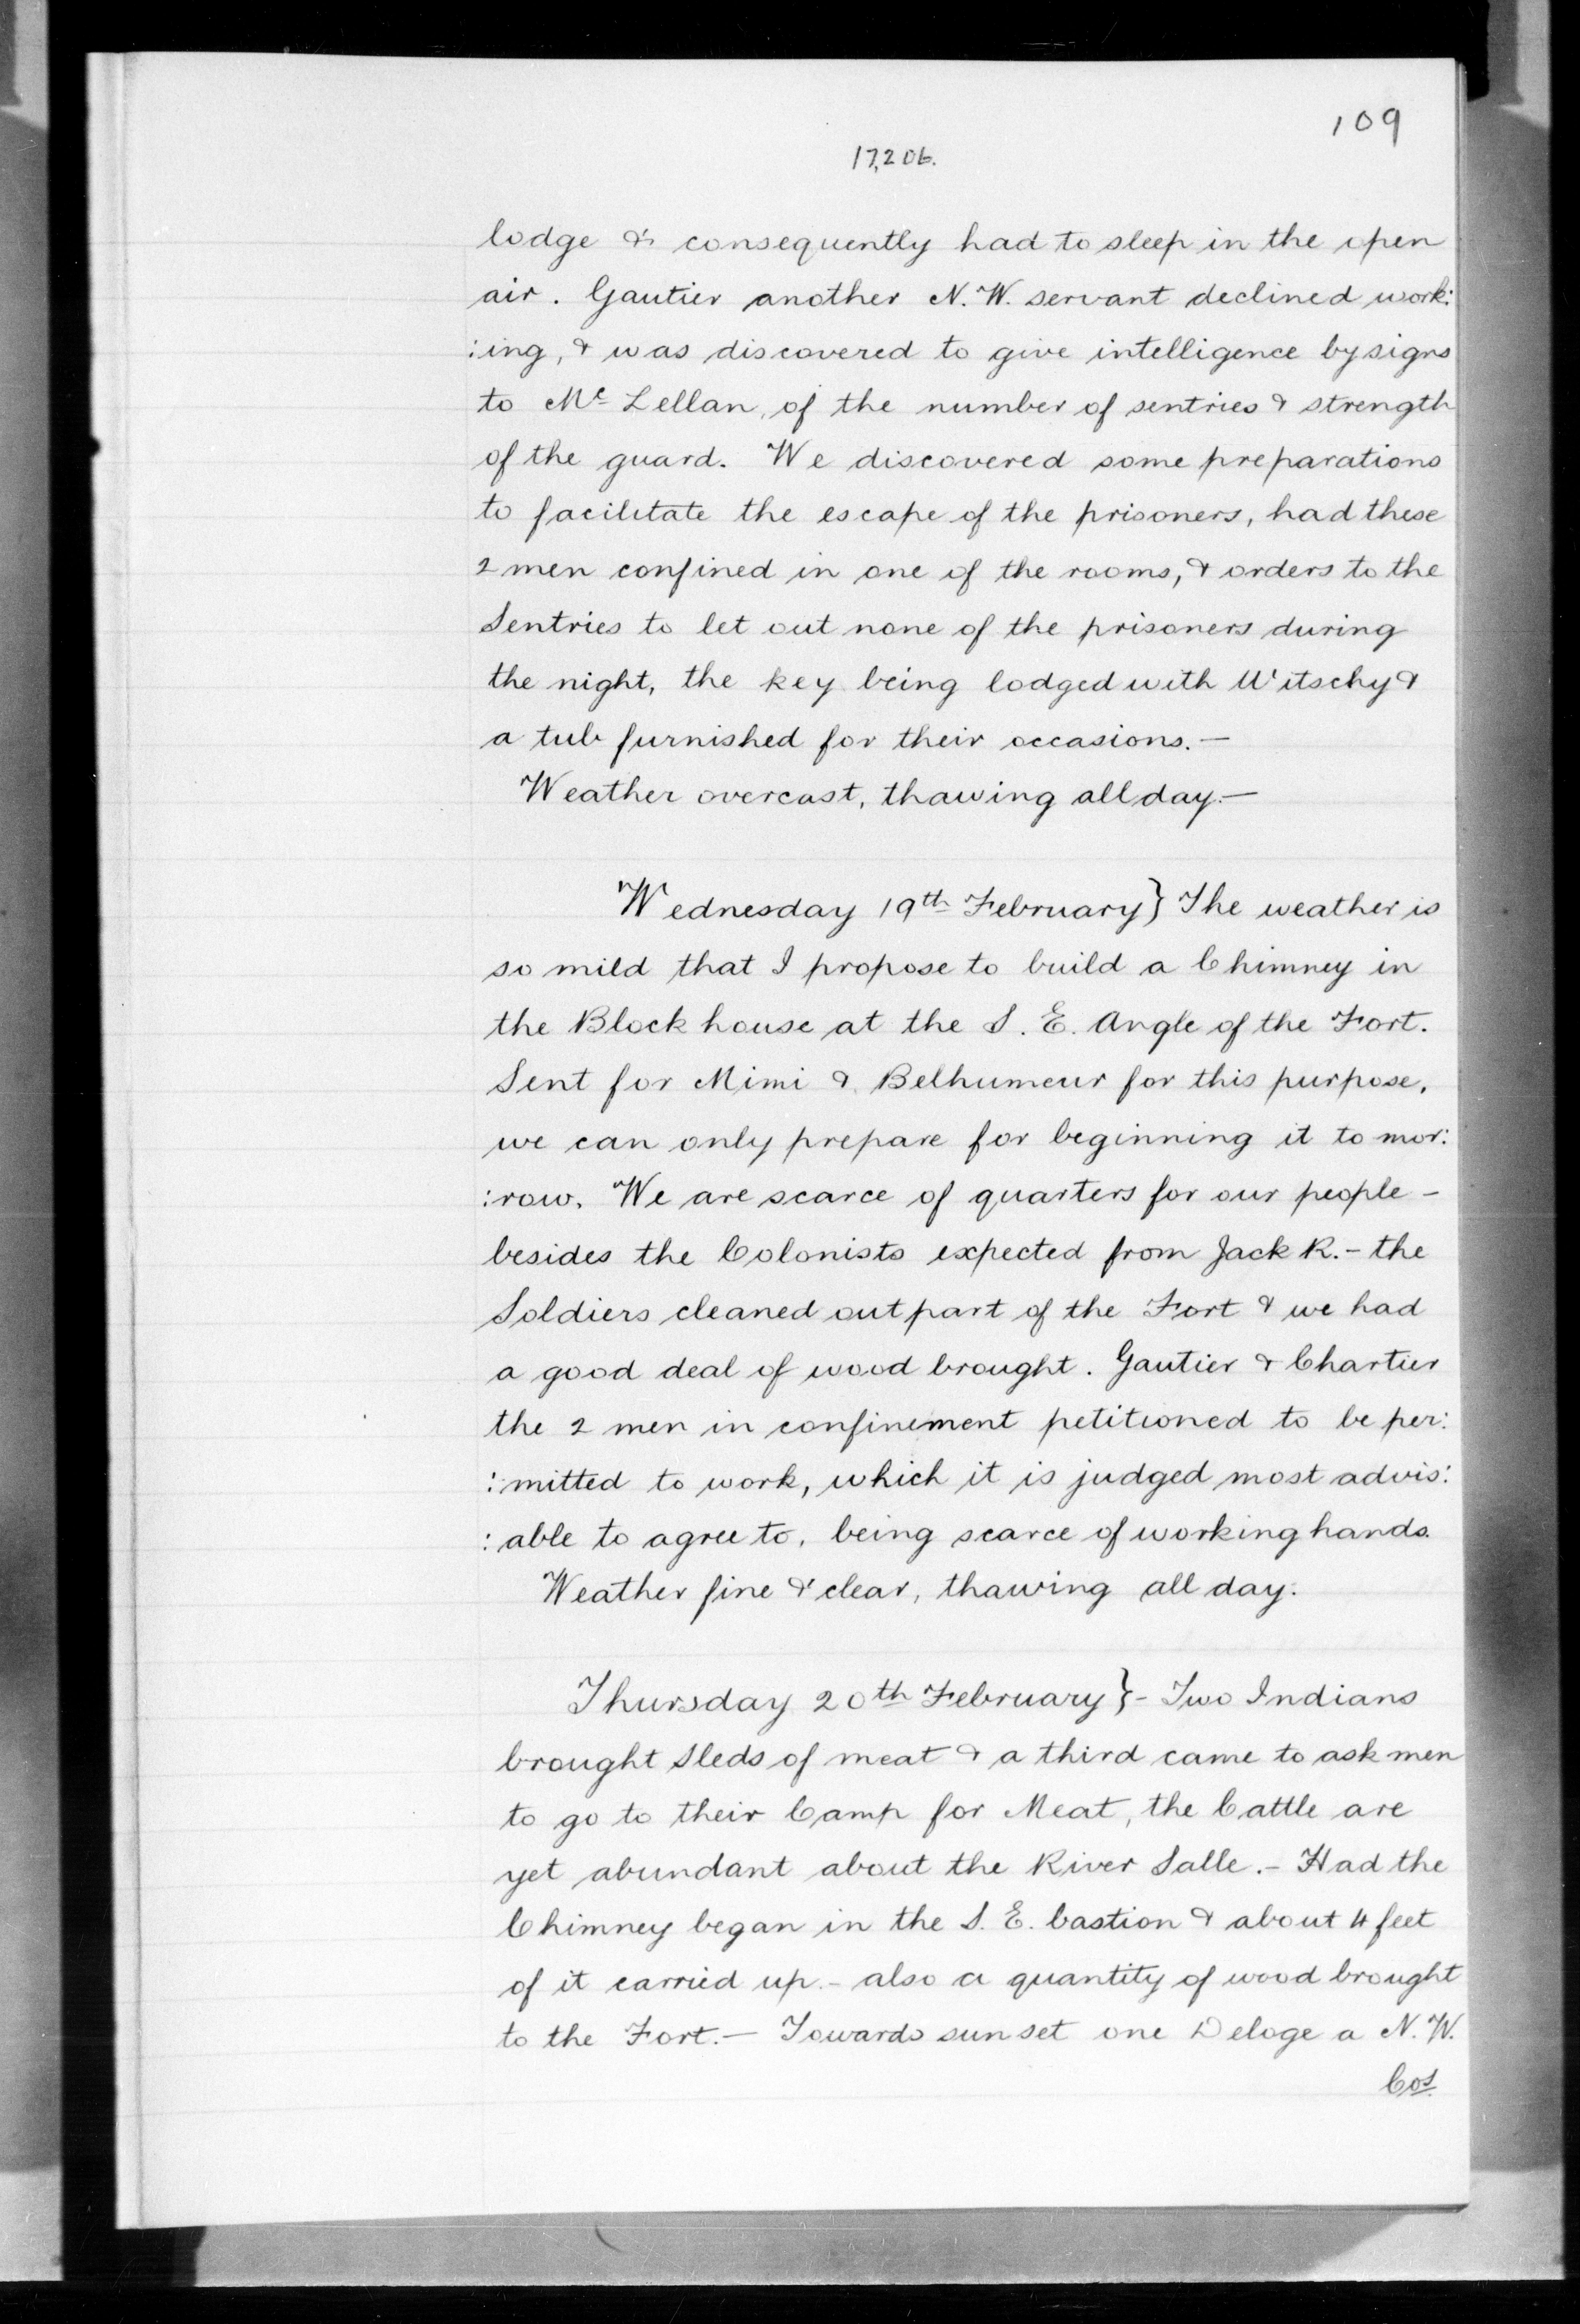 109
17,206.
lodge & consequently had to sleep in the open
air. Gautier another N. W. servant declined work:
:ing, & was discovered to give intelligence by signs
to Mc Lellan, of the number of sentries & strength
of the guard. We discovered some preparations
to facilitate the escape of the prisoners, had these
2 men confined in one of the rooms, & orders to the
Sentries to let out none of the prisoners during
the night, the key being lodged with Witschy &
a tub furnished for their occasions.—
Weather overcast, thawing all day.—
Wednesday 19th February} The weather is
so mild that I propose to build a Chimney in
the Block house at the S. E. Angle of the Fort.
Sent for Mimi & Belhumeur for this purpose,
we can only prepare for beginning it to mor:
:row. We are scarce of quarters for our people -
besides the Colonists expected from Jack R. - the
Soldiers cleaned out part of the Fort & we had
a good deal of wood brought. Gautier & Chartier
the 2 men in confinement petitioned to be per:
:mitted to work, which it is judged most advis:
:able to agree to, being scarce of working hands.
Weather fine & clear, thawing all day.
Thursday 20th February} - Two Indians
brought Sleds of meat & a third came to ask men
to go to their Camp for Meat, the Cattle are
yet abundant about the River Salle. - Had the
Chimney began in the S. E. bastion & about 4 feet
of it carried up. - also a quantity of wood brought
to the Fort. — Towards sun set one Deloge a N. W.
Cos.